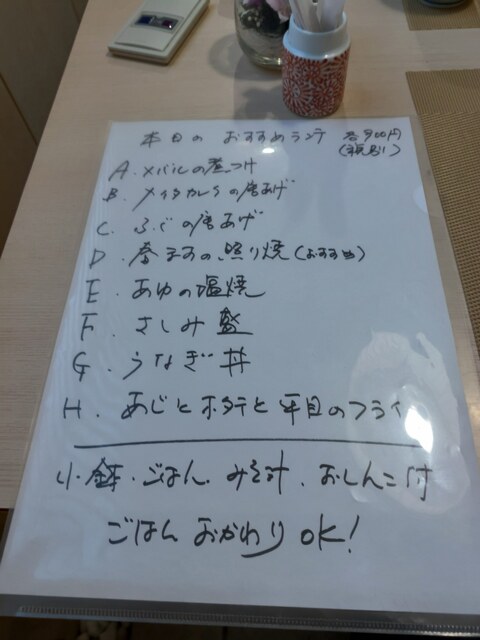 本日のおすすめランチ 各900円
(税別)
A. メバルの煮つけ
B. メイタカレイの唐あげ
C. ふぐの唐あげ
D. 秋ナスの照り焼(おすすめ)
E. あゆの塩焼
F. さしみ盛
G. うなぎ丼
H. あじとホタテと平目のフライ
小鉢・ごはん、みそ汁、おしんこ付
ごはんおかわりOK!